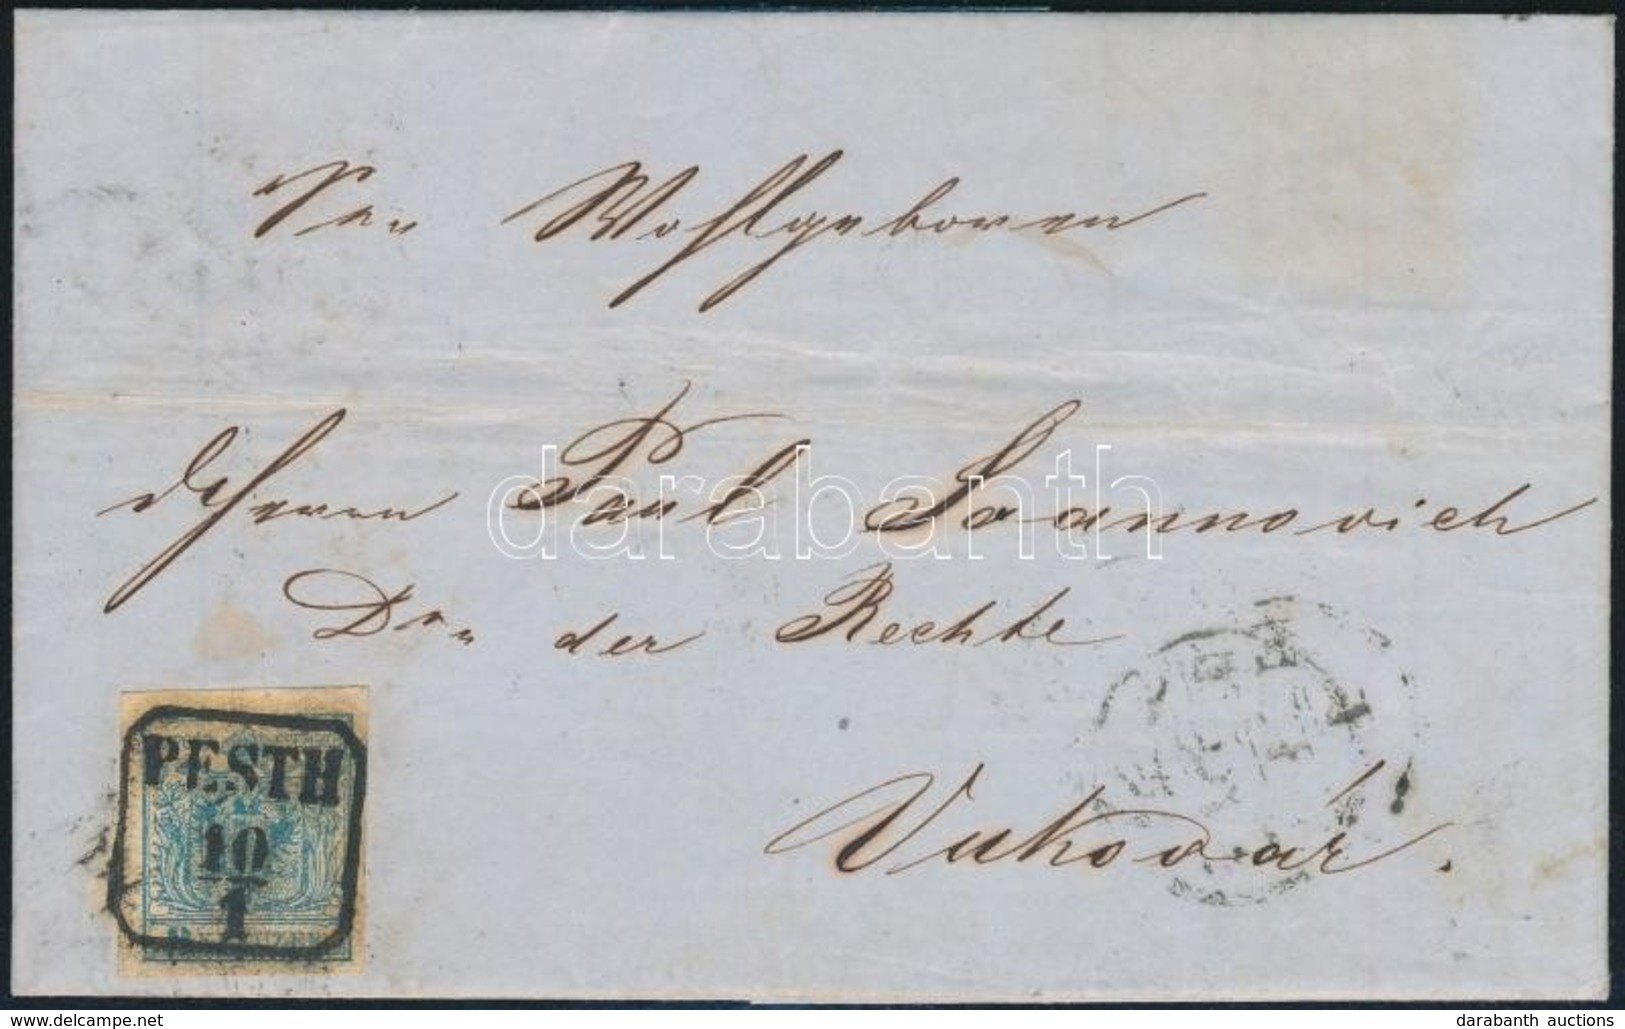 Wohlgeboren
Herrn Paul Joannovich
der Rechte
Vukovár.
PESTH
10
1
KREUZER
darabanth
www.delcampe.net
darabanth auctions